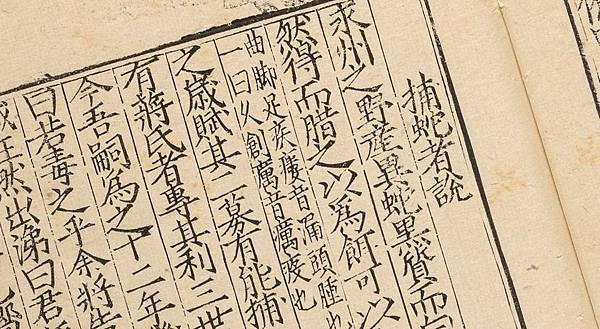 捕蛇者說
永州之野產異蛇黒質而
然得而腊之以為餌可以
曲脚足疾瘻音漏頭腫也
一曰久創厲音癘疫也
之歲賦其二募有能捕
有蔣氏者專其利三世
今吾嗣為之十二年
曰若毒之乎余將告
汪然出涕曰君